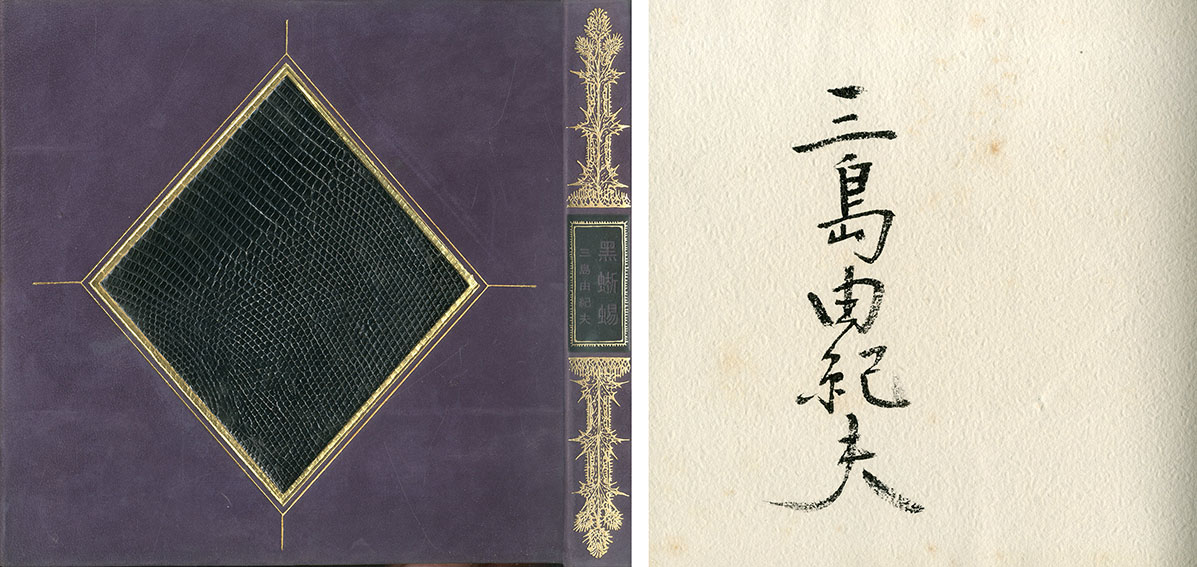 黑蜥蜴
三島由紀夫
三島由紀夫